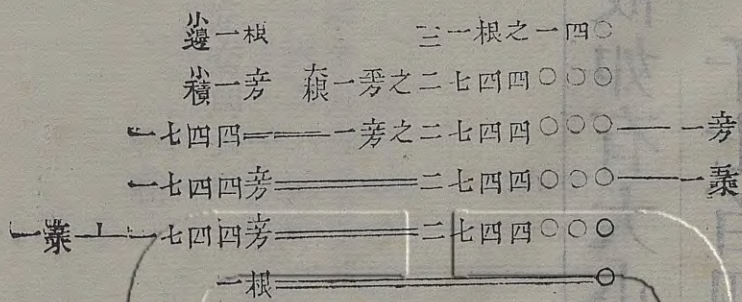 小邊一根 三一根之一四〇
小積一平方 大積一平方之二七四四〇〇〇
一七四四══一平方之二七四四〇〇〇——一平方
一七四四平方══二七四四〇〇〇——一乘方
一乘方⊥一七四四平方══二七四四〇〇〇
一根══〇